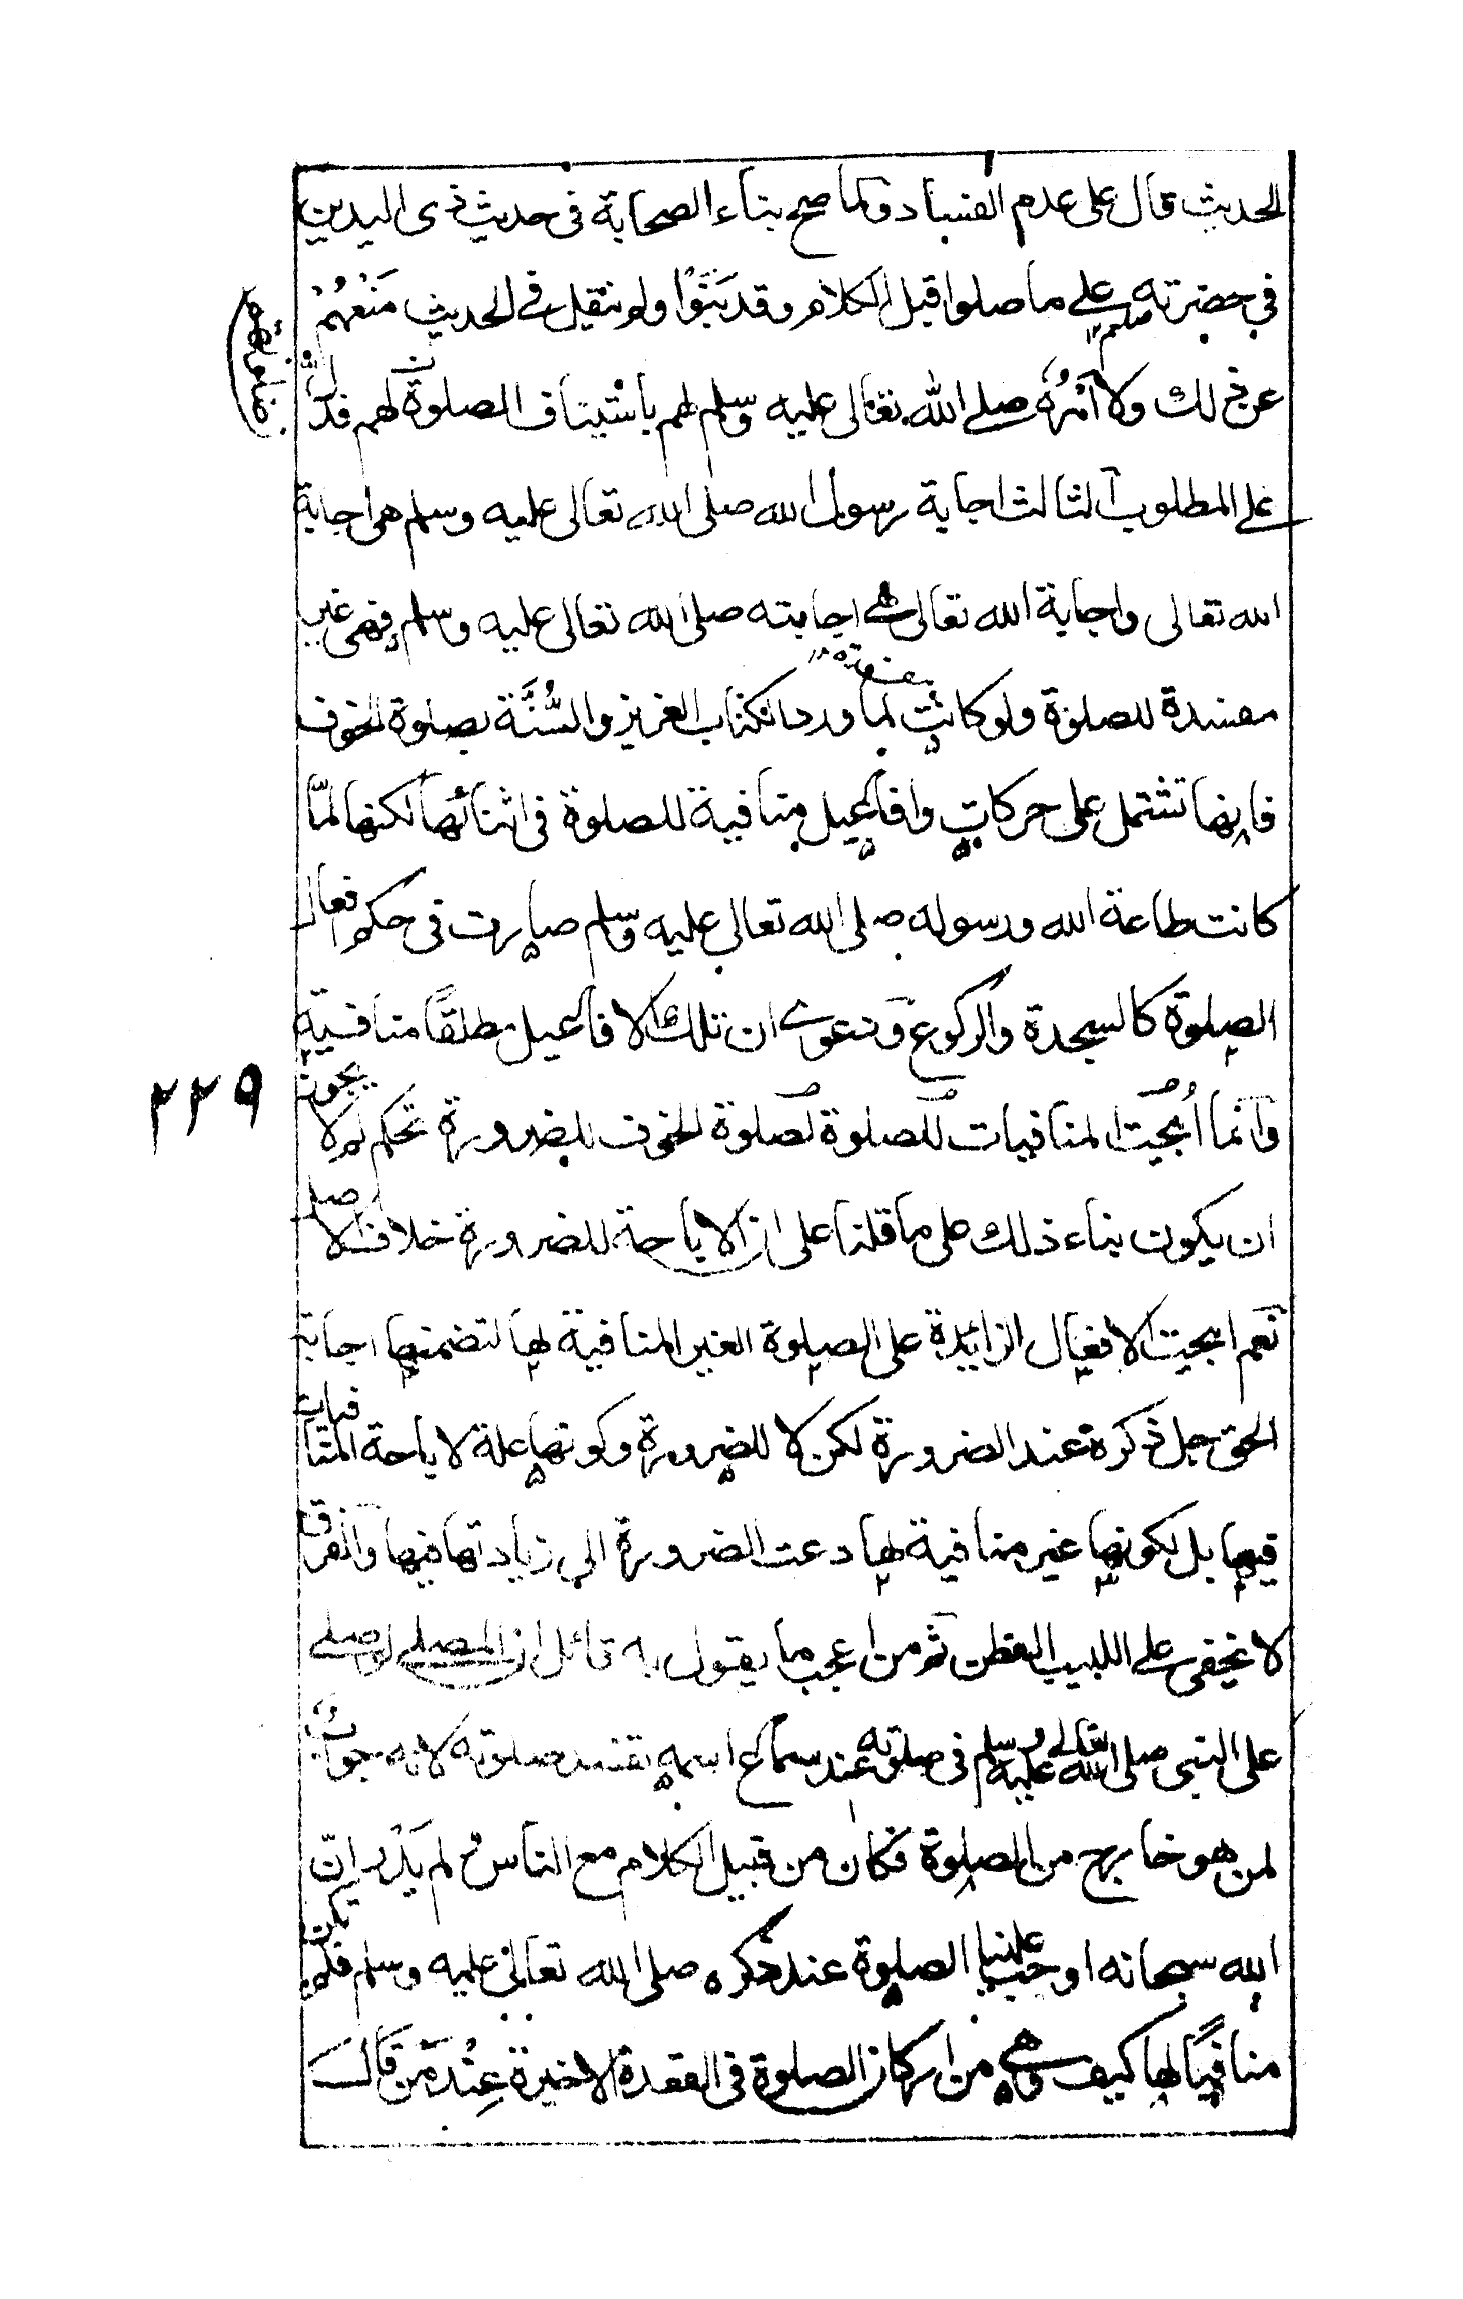 الحديث قال على عدم الفساد وكما صح بناء الصحابة فى حديث ذى اليدين
فى حضرته صلعم على ما صلوا قبل الكلام وقد بَنَوْا ولم ينقل فى الحديث مَنْعُهُمْ
عن ذلك ولا اَمْرُهُ صلى الله تعالى عليه وسلم لهم باستيناف الصلوة لهم فدل
على المطلوب الثالث اجابة رسول الله صلى الله تعالى عليه وسلم هى اجابة
الله تعالى واجابة الله تعالى هى اجابته صلى الله تعالى عليه وسلم فهى غير
مفسدة للصلوة ولو كانت لما ورد الكتاب العزيز والسُّنَّة بصلوة الخوف
فانها تشتمل على حركات وافاعيل منافية للصلوة فى اثنائها لكنها لمّا
كانت طاعة الله ورسوله صلى الله تعالى عليه وسلم صارت فى حكم افعال
الصلوة كالسجدة والركوع ودعوى ان تلك الافاعيل مطلقًا منافية
وانما اُبيحت المنافيات للصلوة لصلوة الخوف للضرورة تحكم لم لا يجوز
ان يكون بناء ذلك على ما قلنا على ان الاباحة للضرورة خلاف الاصل
نعم ابيحت الافعال الزايدة على الصلوة الغير المنافية لها لتضمنها اجابة
الحق جل ذكره عند الضرورة لكن لا للضرورة وكونها علة لاباحة المنافيات
فيها بل لكونها غير منافية لها دعت الضرورة الى زيادتها فيها والفرق
لا يخفى على اللبيب الفطن ثم من اعجب ما يقول به قائل ان المصلى لو صلى
على النبى صلى الله تعالى عليه وسلم فى صلوته عند سماع اسمه تفسد صلوته لانه جواب
لمن هو خارج من الصلوة فكان من قبيل الكلام مع الناس ولم يَدْرِ انّ
الله سبحانه اوجب علينا الصلوة عند ذكره صلى الله تعالى عليه وسلم فلم يكن
منافيًا لها كيف وهى من اركان الصلوة فى القعدة الاخيرة عِنْدَ مَن قَالَ
٢٢٩